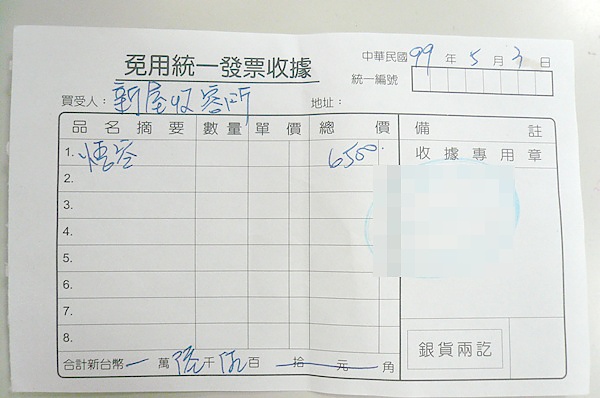 免用統一發票收據
中華民國 99 年 5 月 3 日
統一編號
買受人：新屋收容所 地址：
品名摘要 數量 單價 總價 備註
1. 悟空 6500 收據專用章
2.
3.
4.
5.
6.
7.
8.
銀貨兩訖
合計新台幣 萬 陸 千 伍 百 拾 元 角